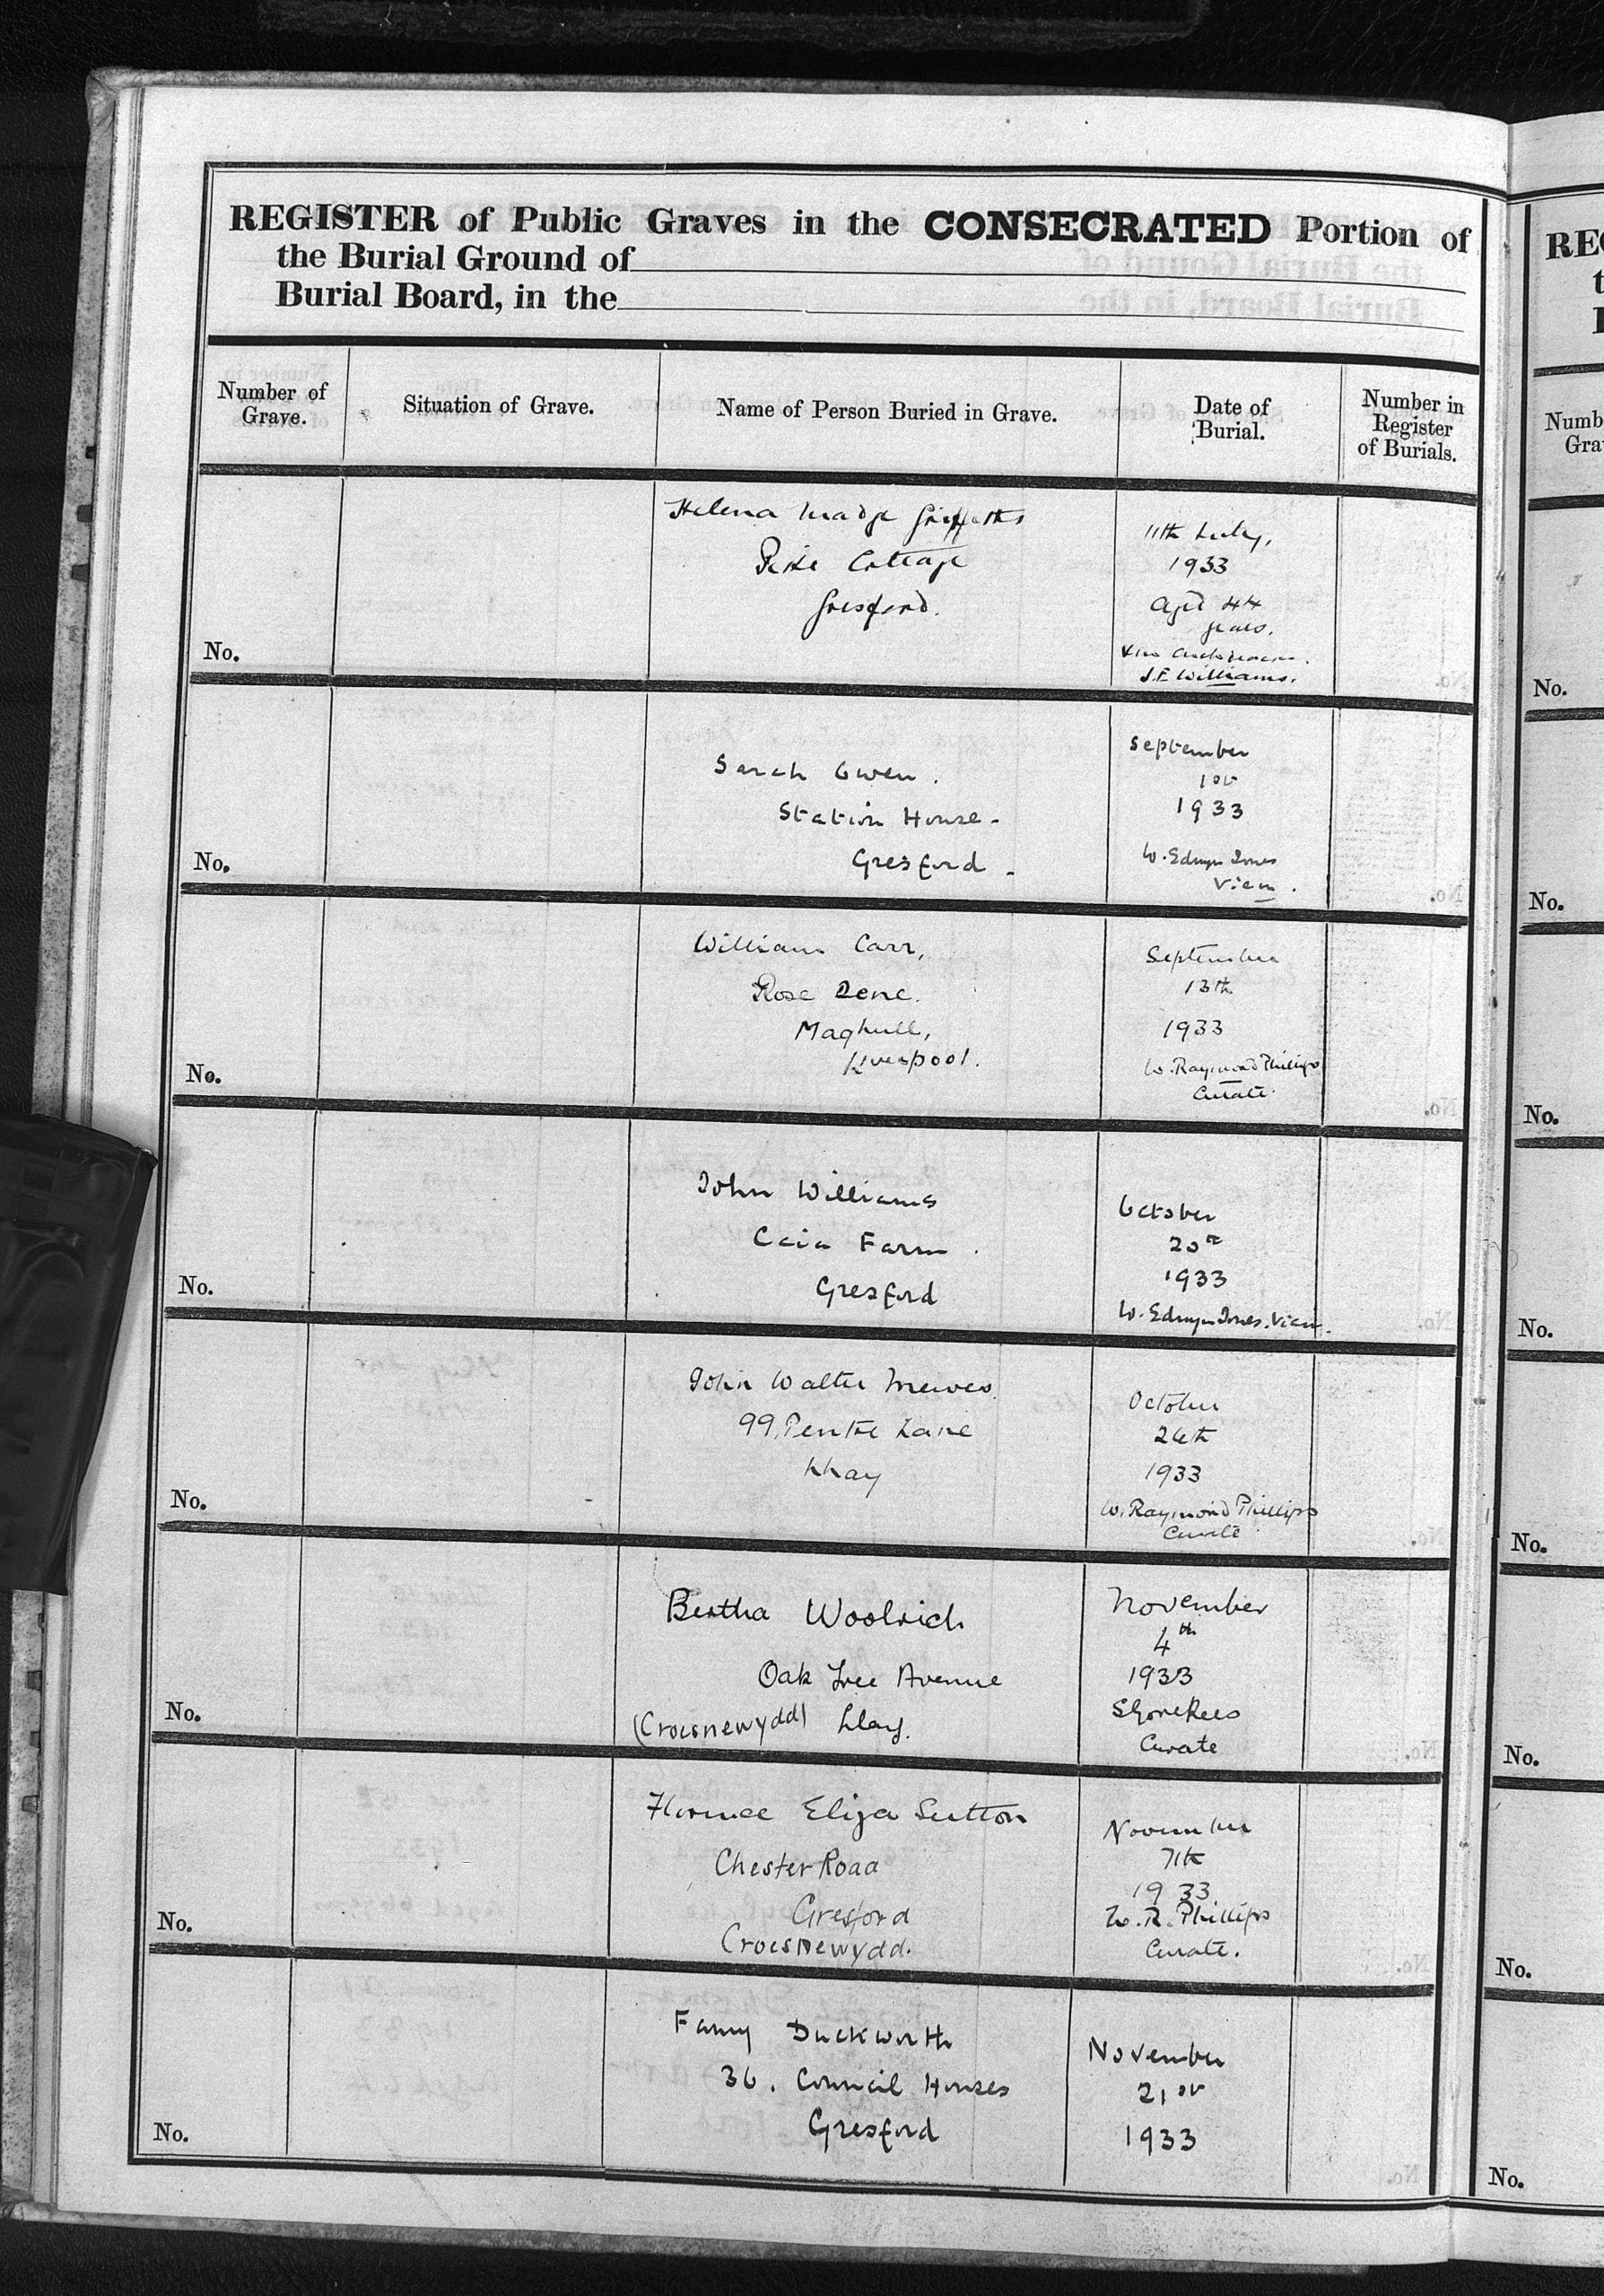 REGISTER of Public Graves in the CONSECRATED Portion of
the Burial Ground of
Burial Board, in the
Number of Grave.
Situation of Grave.
Name of Person Buried in Grave.
Date of Burial.
Number in Register of Burials.
Helena Madge Griffiths
Cottage
Gresford.
11th July,
1933
Aged 44
years.
J.E. Williams.
No.
Sarah Owen.
Station House.
Gresford.
September
1st
1933
W. Edwyn Jones
Vicar.
No.
William Carr,
Rose Dene.
Maghull,
Liverpool.
September
13th
1933
W. Raymond Phillips
Curate.
No.
John Williams
Caia Farm.
Gresford
October
20th
1933
W. Edwyn Jones. Vicar.
No.
John Walter
99, Pentre Lane
Llay
October
1933
W. Raymond Phillips
Curate
No.
Bertha Woolrich
Oak Tree Avenue
(Croesnewydd) Llay.
November
4th
1933
Curate
No.
Florence Eliza Sutton
Chester Road
Gresford
Croesnewydd.
November
7th
1933.
W. R. Phillips
Curate.
No.
Fanny Duckworth
36, Council Houses
Gresford
November
21st
1933
No.
No.
No.
No.
No.
No.
No.
No.
No.